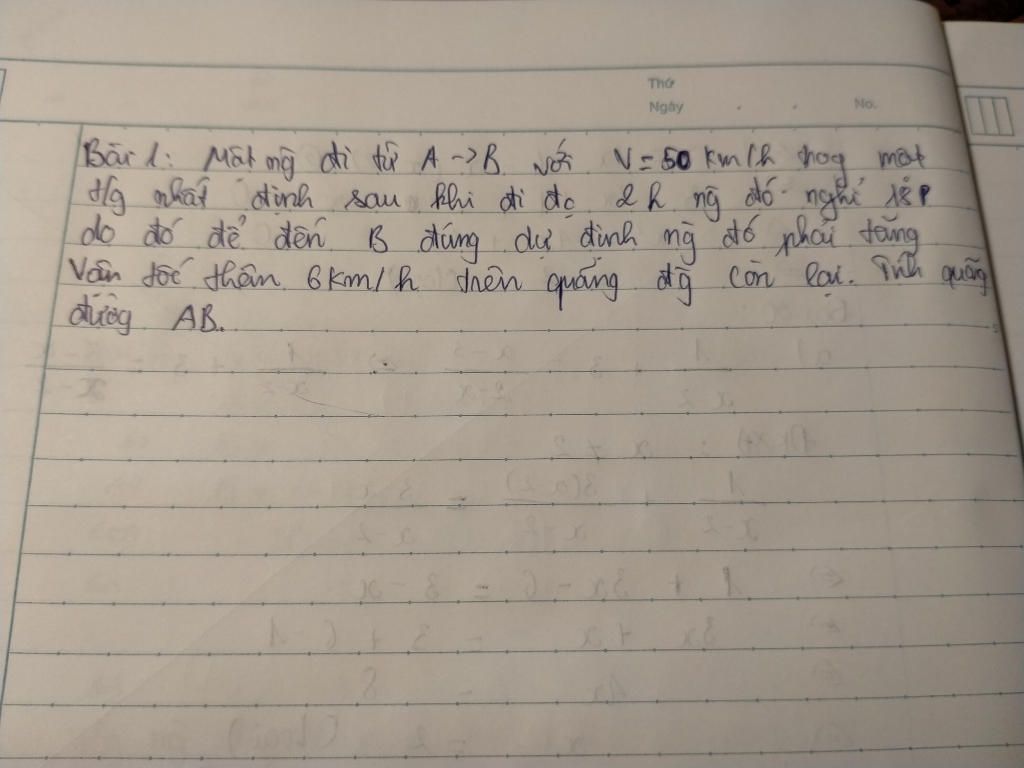 Thứ
Ngày No.
Bài 1: Một ng đi từ A -> B với V = 50 km/h trog một
t/g nhất định sau khi đi đc 2h ng đó nghỉ 18p
do đó để đến B đúng dự định ng đó phải tăng
Vận tốc thêm 6km/h trên quãng đg còn lại. Tính quãng
đường AB.